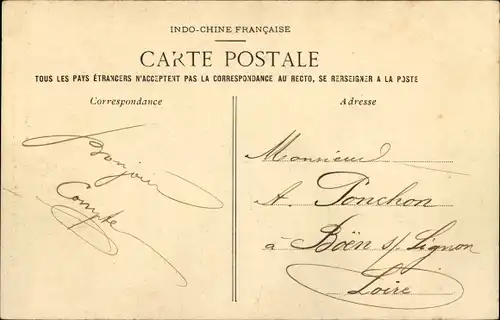 INDO-CHINE FRANÇAISE
CARTE POSTALE
TOUS LES PAYS ÉTRANGERS N'ACCEPTENT PAS LA CORRESPONDANCE AU RECTO, SE RERSEIGNER A LA POSTE
Correspondance
Adresse
Bonjour
Compte
Monsieur
A. Ponchon
à Boën s/ Lignon
Loire